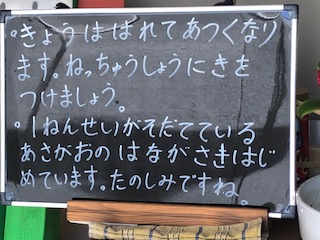 。きょうは はれて あつくなり
ます。ねっちゅうしょうに きを
つけましょう。
。1ねんせいが そだてている
あさがおの はなが さきはじ
めています。たのしみですね。